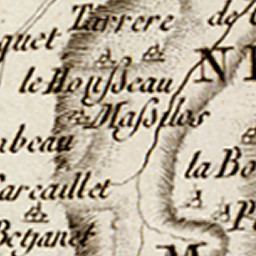 Tarrere
de
quet
le Housseau
N
Massilos
beau
la Bo
arcaillet
Betjanet
P
M